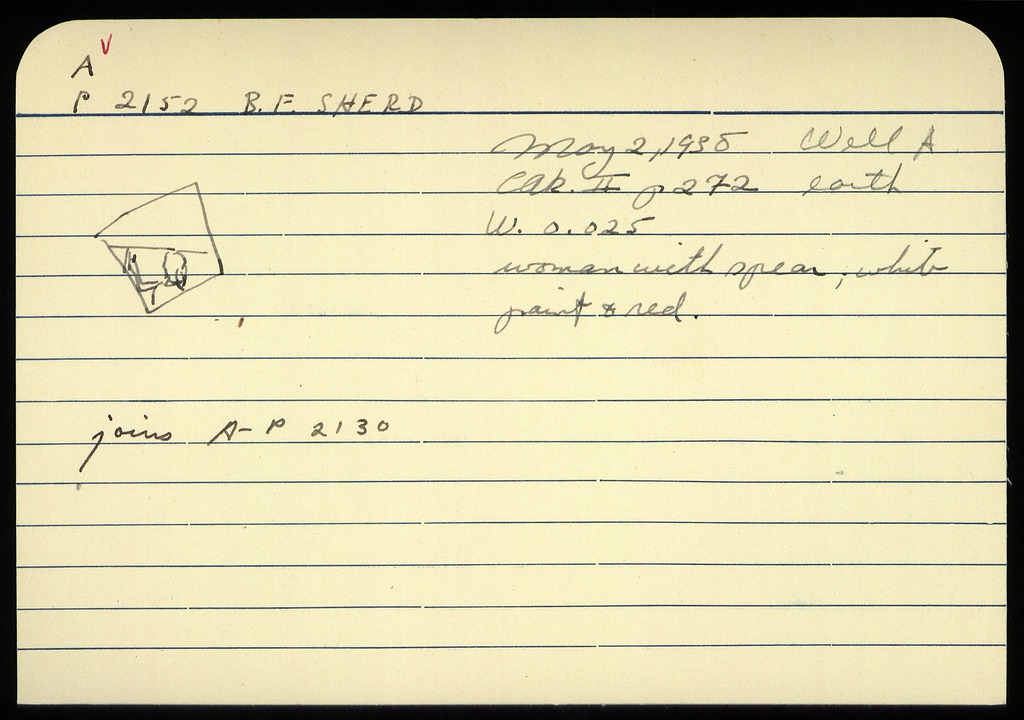 A V
P 2152 B.F. SHERD
May 2, 1938 Well A
II p 272 earth
W. 0.025
woman with spear; white
paint & red.
joins A-P 2130